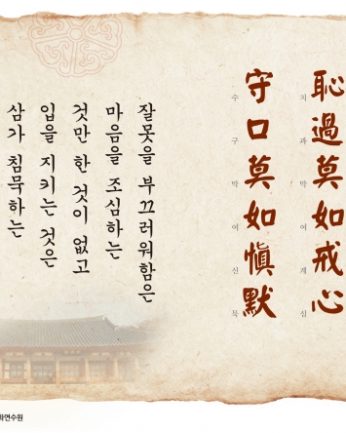 恥過莫如戒心
치과막여계심
守口莫如愼默
수구막여신묵
잘못을 부끄러워함은
마음을 조심하는
것만 한 것이 없고
입을 지키는 것은
삼가 침묵하는
화연수원